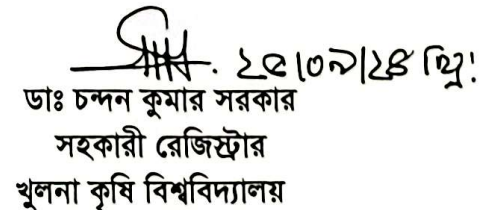 ২৫|০৯|২৪ খ্রি:
ডাঃ চন্দন কুমার সরকার
সহকারী রেজিস্ট্রার
খুলনা কৃষি বিশ্ববিদ্যালয়